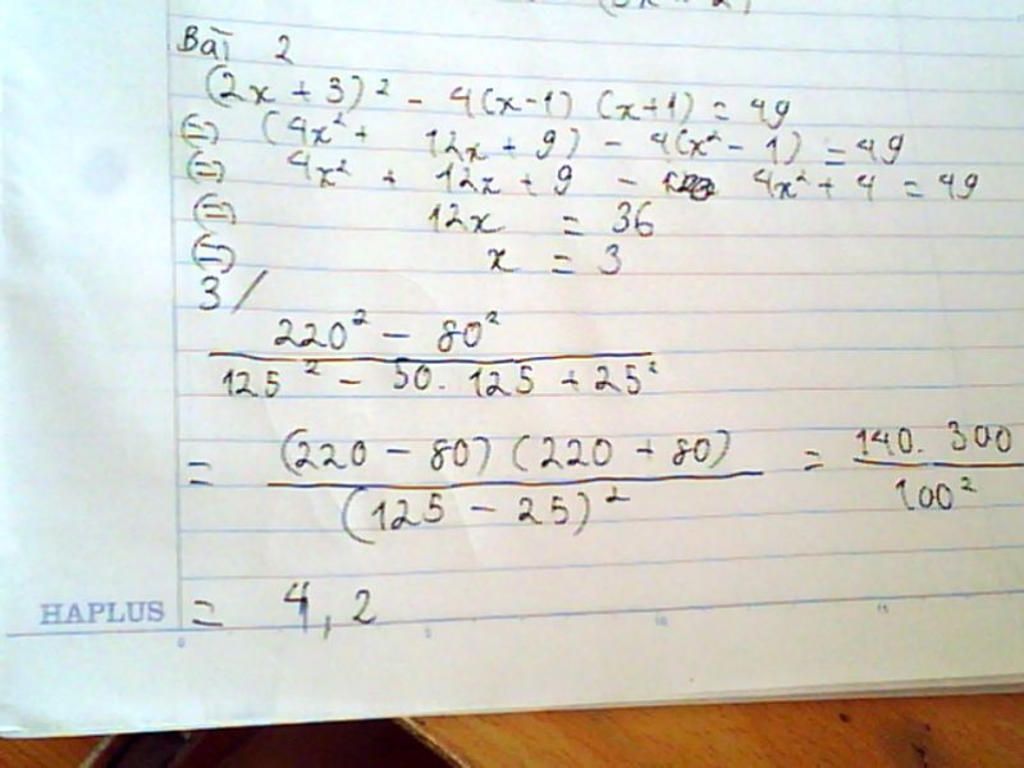 Bài 2
(2x + 3)² - 4(x-1) (x+1) = 49
⇔ (4x² + 12x + 9) - 4(x² - 1) = 49
⇔ 4x² + 12x + 9 - 4x² + 4 = 49
⇔ 12x = 36
⇔ x = 3
3/
220² - 80²
125² - 50. 125 + 25²
= (220 - 80) (220 + 80) = 140. 300
(125 - 25)² 100²
= 4,2
HAPLUS
0 5 10 15